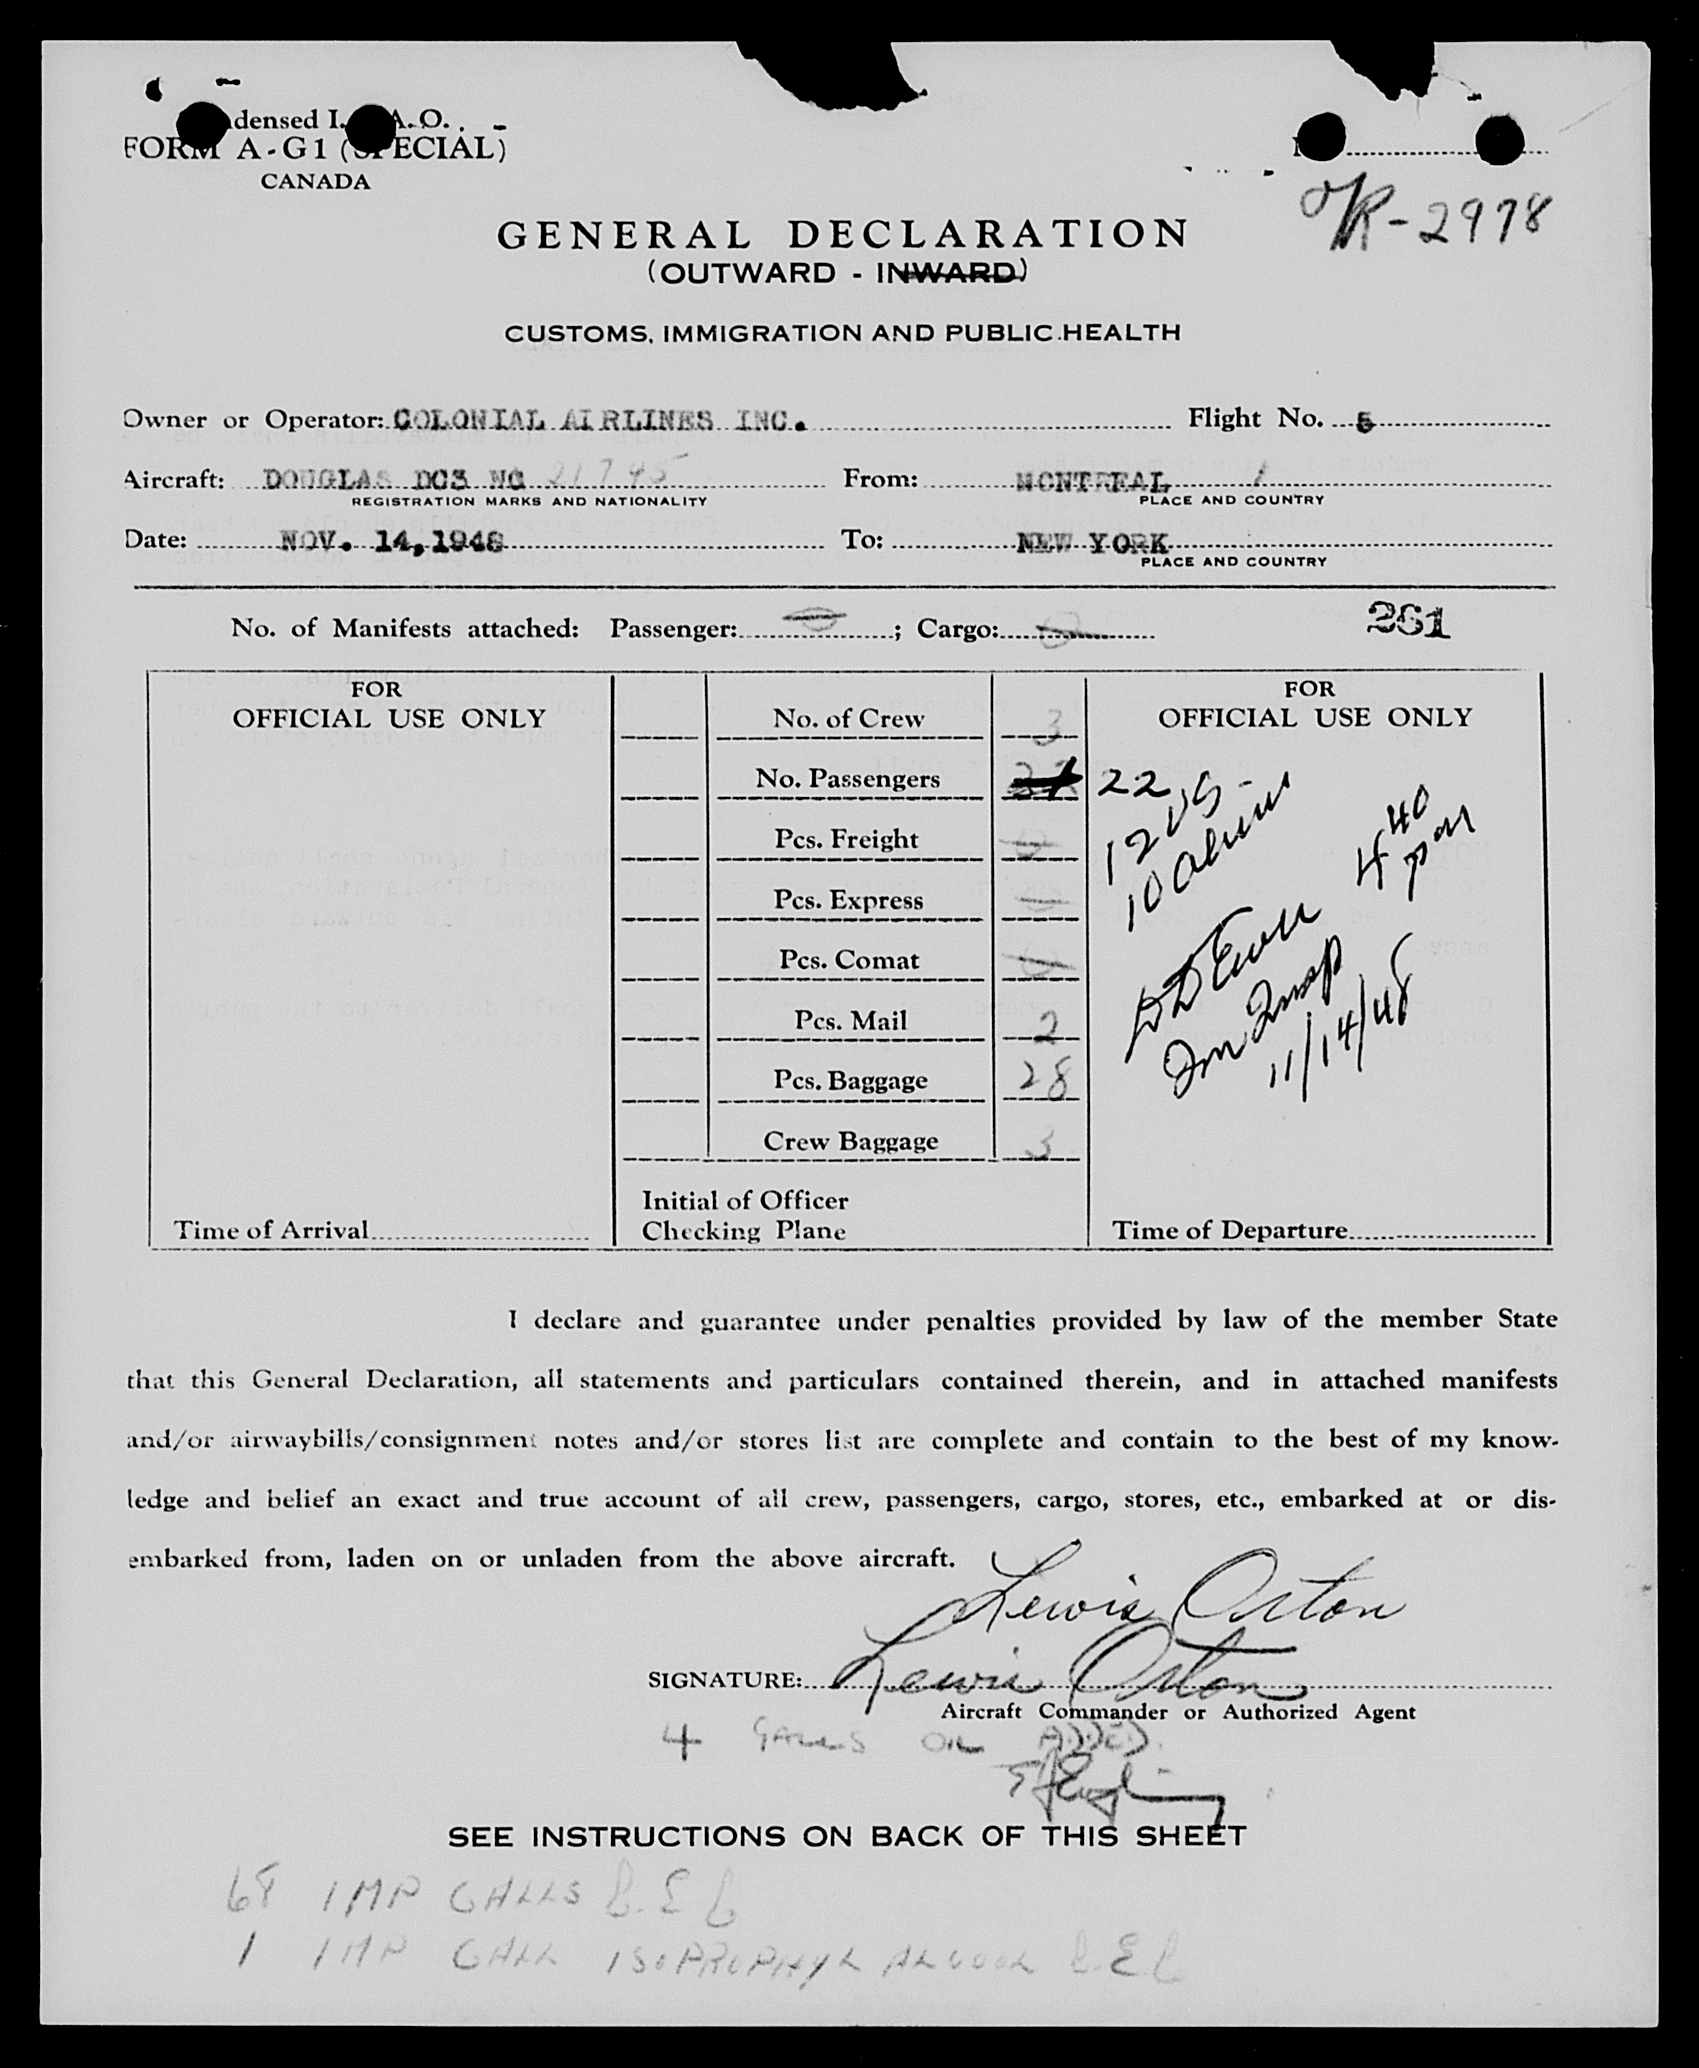 densed I. A.O.
FORM A-G1 (SPECIAL)
CANADA
OK-2978
GENERAL DECLARATION
(OUTWARD - INWARD)
CUSTOMS, IMMIGRATION AND PUBLIC HEALTH
Owner or Operator: COLONIAL AIRLINES INC. Flight No. 5
Aircraft: DOUGLAS DC3 NC 21745 From: MONTREAL
REGISTRATION MARKS AND NATIONALITY PLACE AND COUNTRY
Date: NOV. 14,1948 To: NEW YORK
PLACE AND COUNTRY
No. of Manifests attached: Passenger: 0; Cargo: 0 261
FOR
OFFICIAL USE ONLY
Time of Arrival
No. of Crew 3
No. Passengers
Pcs. Freight 0
Pcs. Express 0
Pcs. Comat 0
Pcs. Mail 2
Pcs. Baggage 28
Crew Baggage 3
Initial of Officer
Checking Plane
FOR
OFFICIAL USE ONLY
22
12 US-
10 aliens
4 40
pm
Im Insp
11/14/48
Time of Departure
I declare and guarantee under penalties provided by law of the member State
that this General Declaration, all statements and particulars contained therein, and in attached manifests
and/or airwaybills/consignment notes and/or stores list are complete and contain to the best of my know-
ledge and belief an exact and true account of all crew, passengers, cargo, stores, etc., embarked at or dis-
embarked from, laden on or unladen from the above aircraft.
Lewis Orton
SIGNATURE: Lewis Orton
Aircraft Commander or Authorized Agent
4 GALLS OIL ADDED.
SEE INSTRUCTIONS ON BACK OF THIS SHEET
68 IMP GALLS
1 IMP GALL ISOPROPHYL